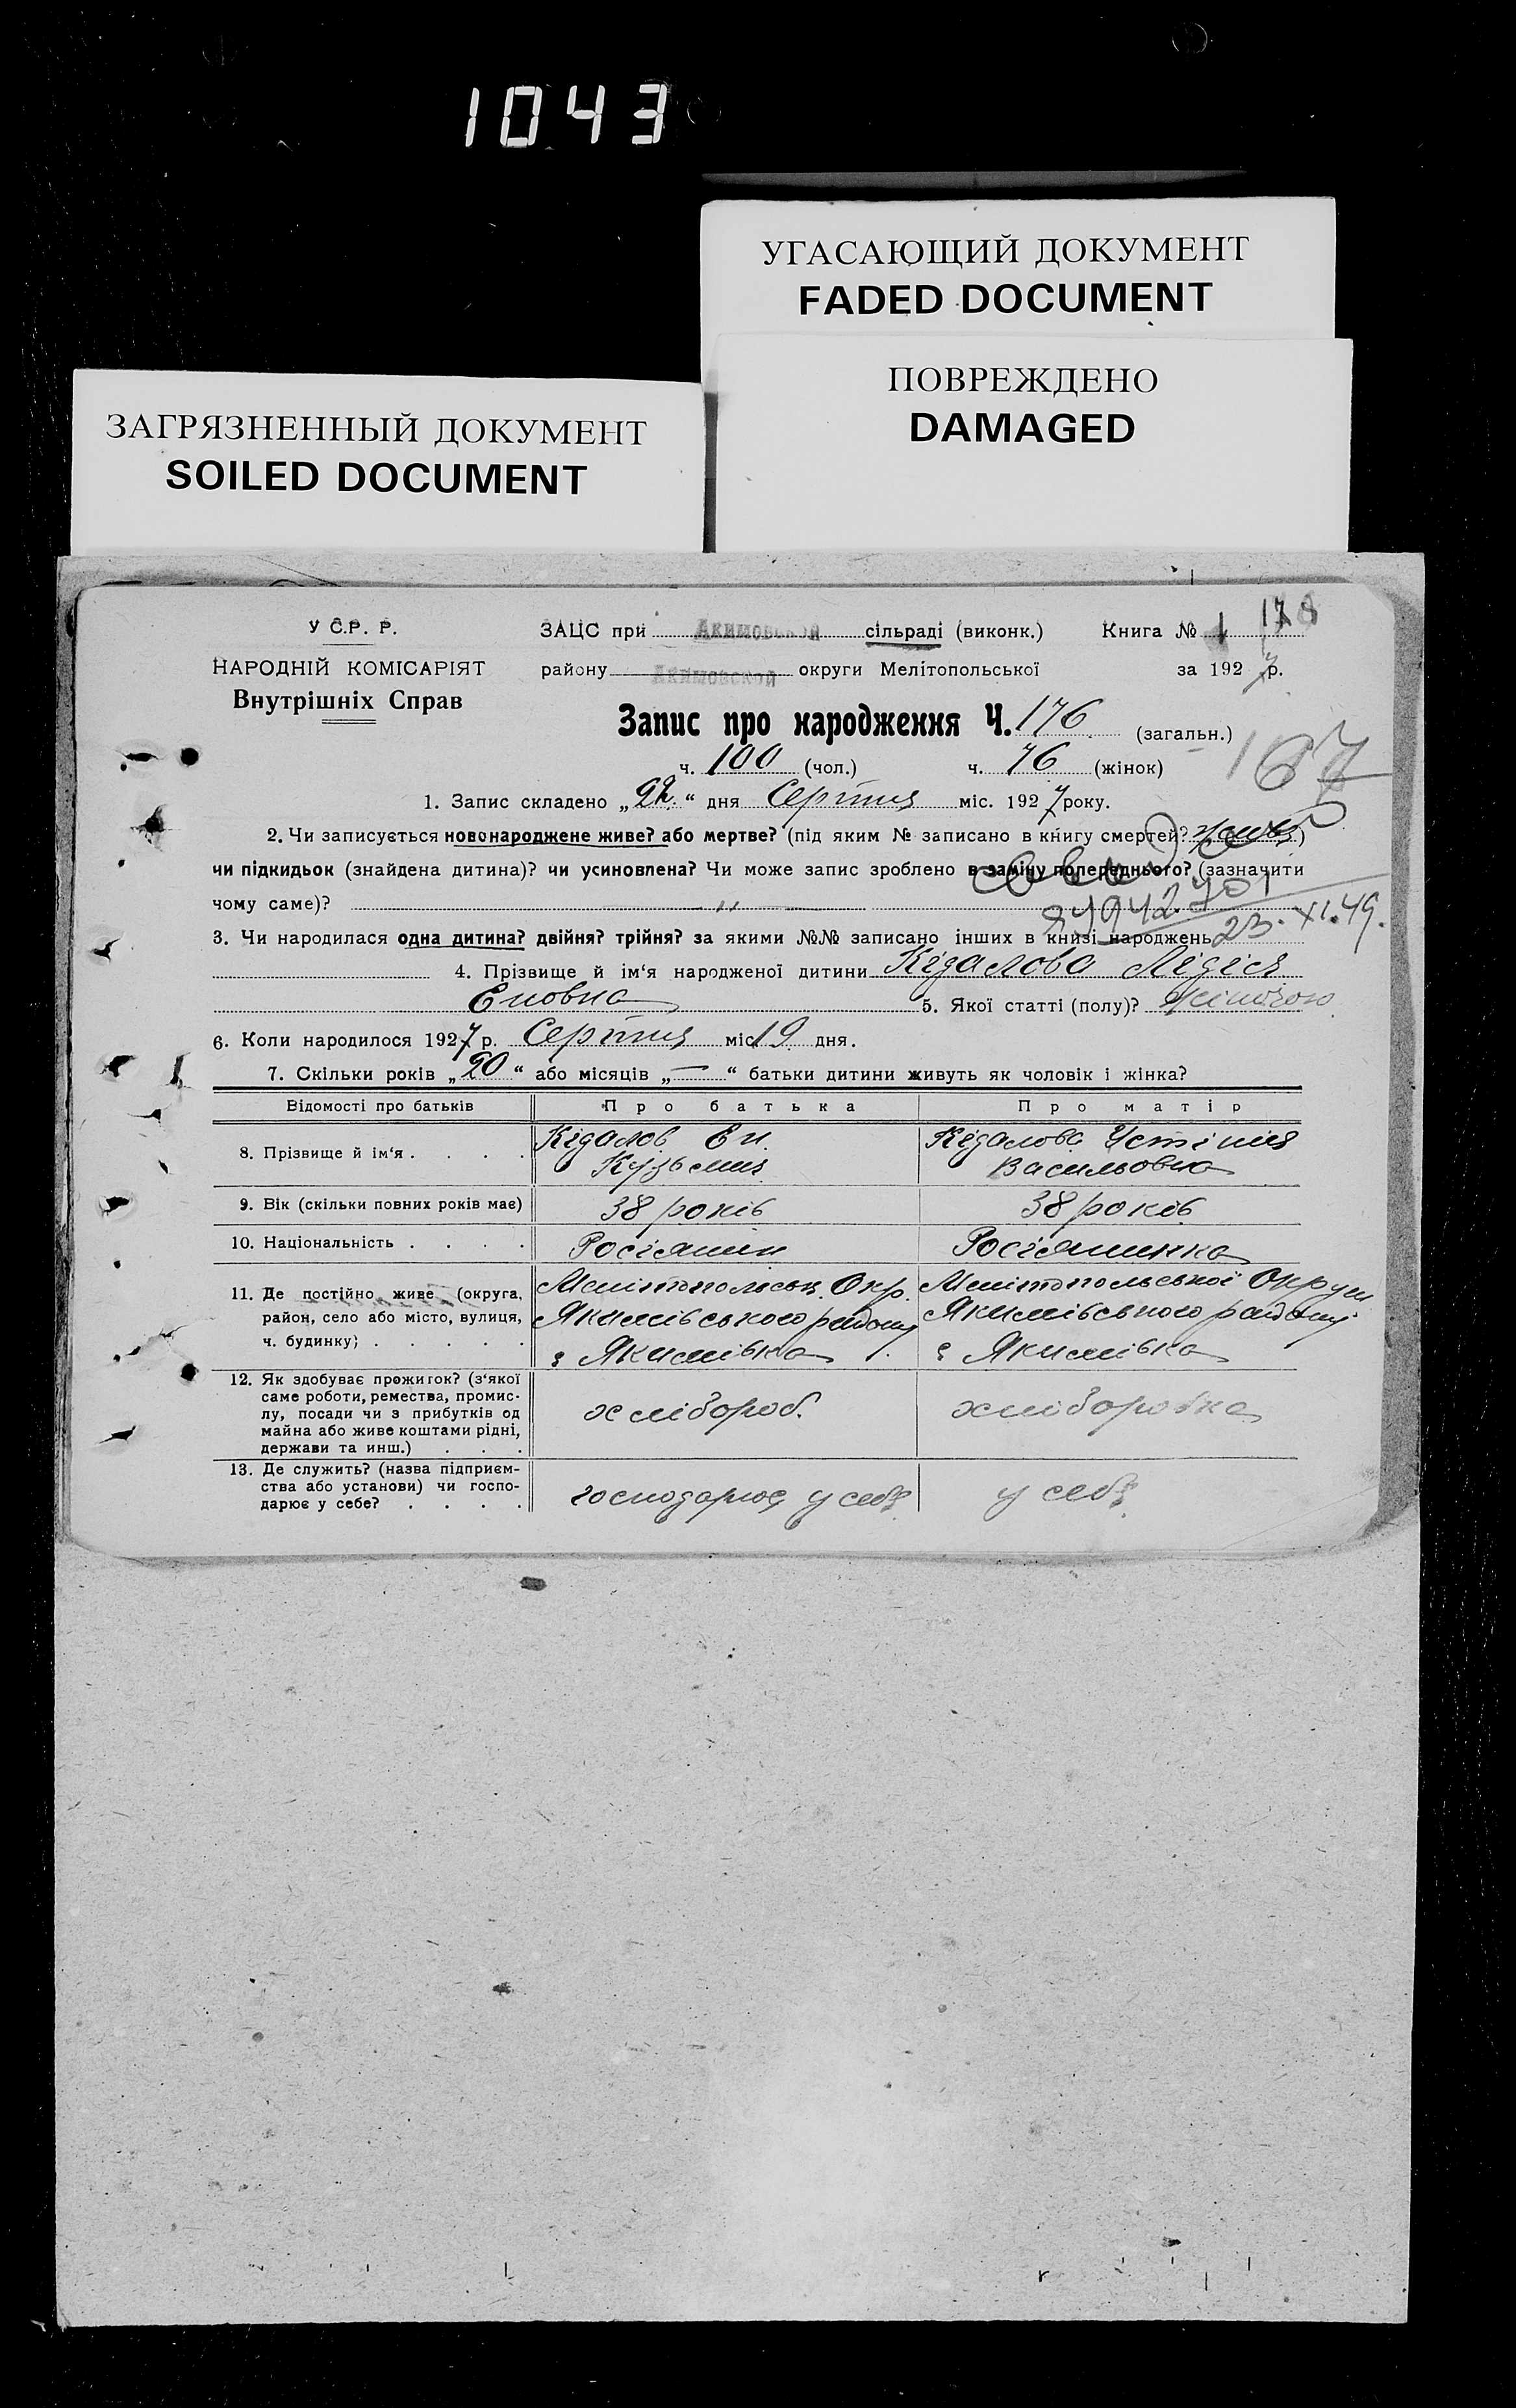 1043
УГАСАЮЩИЙ ДОКУМЕНТ
FADED DOCUMENT
ПОВРЕЖДЕНО
DAMAGED
ЗАГРЯЗНЕННЫЙ ДОКУМЕНТ
SOILED DOCUMENT
У С.Р. Р.
НАРОДНІЙ КОМІСАРІЯТ
Внутрішніх Справ
ЗАЦС при Акимовской сільраді (виконк.) Книга № 1
району Акимовской округи Мелітопольської за 1927 р.
Запис про народження Ч. 176 (загальн.)
167
ч. 100 (чол.) ч. 76 (жінок)
1. Запис складено „22“ дня Серпня міс. 1927 року.
2. Чи записується новонароджене живе? або мертве? (під яким № записано в книгу смертей?)
чи підкидьок (знайдена дитина)? чи усиновлена? Чи може запис зроблено в заміну попереднього? (зазначити
чому саме)? — „ —
23. XI. 49.
3. Чи народилася одна дитина? двійня? трійня? за якими №№ записано інших в книзі народжень
4. Прізвище й ім‘я народженої дитини Кідалова Лідія
Еновна 5. Якої статті (полу)? жіночою
6. Коли народилося 1927 р. Серпня міс. 19 дня.
7. Скільки років „20“ або місяців „—“ батьки дитини живуть як чоловік і жінка?
Відомості про батьків Про батька Про матір
8. Прізвище й ім‘я . . . . Кідалов Ен. Кідалова Устінія
Кузьмич Васильовна
9. Вік (скільки повних років має) 38 років 38 років
10. Національність . . . . Росіянин Росіянинка
11. Де постійно живе (округа, Мелітопольськ. Окр. Мелітопольської Округи
район, село або місто, вулиця, Якимівського району Якимівського району
ч. будинку) . . . . . с Якимівка с Якимівка
12. Як здобуває прожиток? (з‘якої
саме роботи, ремества, промис-
лу, посади чи з прибутків од хлібороб. хліборобка
майна або живе коштами рідні,
держави та инш.) . . .
13. Де служить? (назва підприєм-
ства або установи) чи госпо- господарює у себе у себе
дарює у себе? . . . .